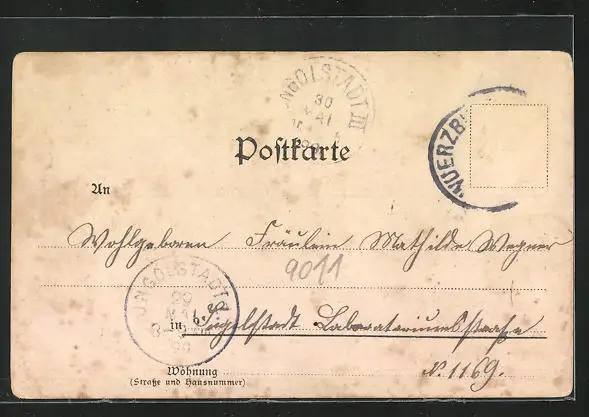 INGOLSTADT III
30
MAI
Postkarte
WUERZB
An
Wohlgeboren Fräulein Mathilde Wegner
9011
INGOLSTADT
29
MAI
in Ingolstadt Laboratoriumsstrasse
Wohnung
(Straße und Hausnummer)
N. 1169.